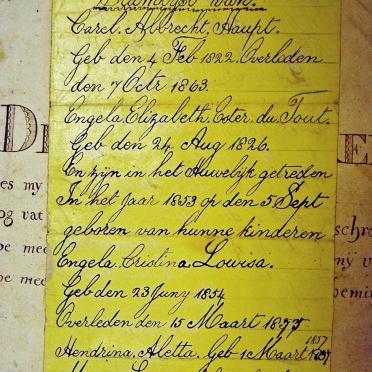 van.
Carel. Albrecht. Haupt.
Geb den 4 Feb 1822. Overleden
den 7 Octr 1863.
Engela. Elizabeth. Coter. du. Tout.
Geb den 24 Aug 1826.
En zijn in het Huwelijk getreden
In het Jaar 1853 op den 5 Sept
geboren van hunne kinderen
Engela. Cristina. Lowisa.
Geb den 23 Juny 1854
Overleden den 15 Maart 1877
1857
Hendrina. Aletta. Geb 1 Maart
es my